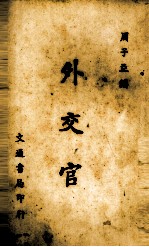 周子亞編
外交官
文通書局印行